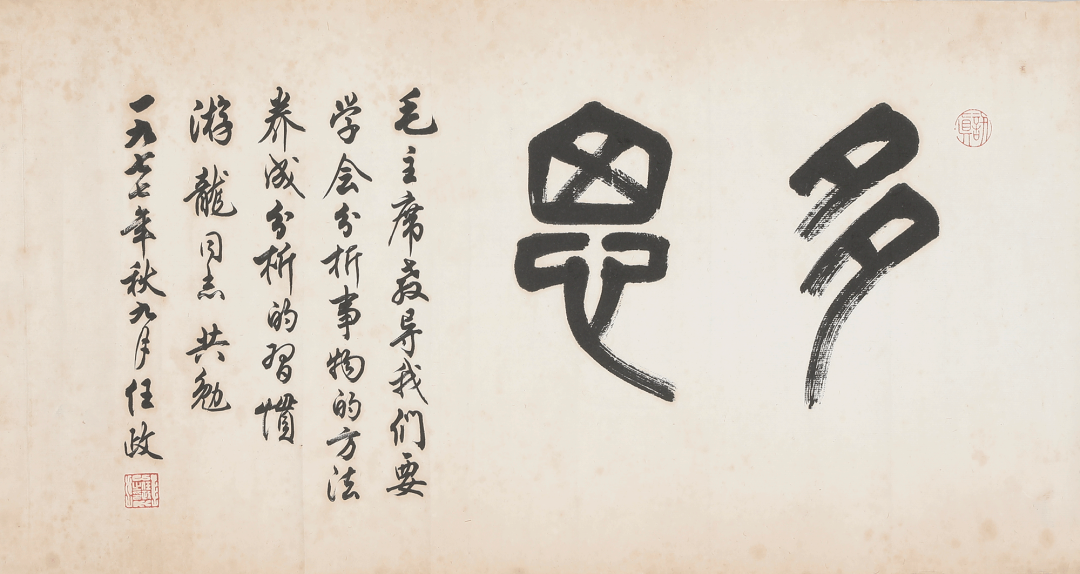 認真
多思
毛主席教导我们要
学会分析事物的方法
养成分析的習慣
游龍同志共勉
一九七七年秋九月任政